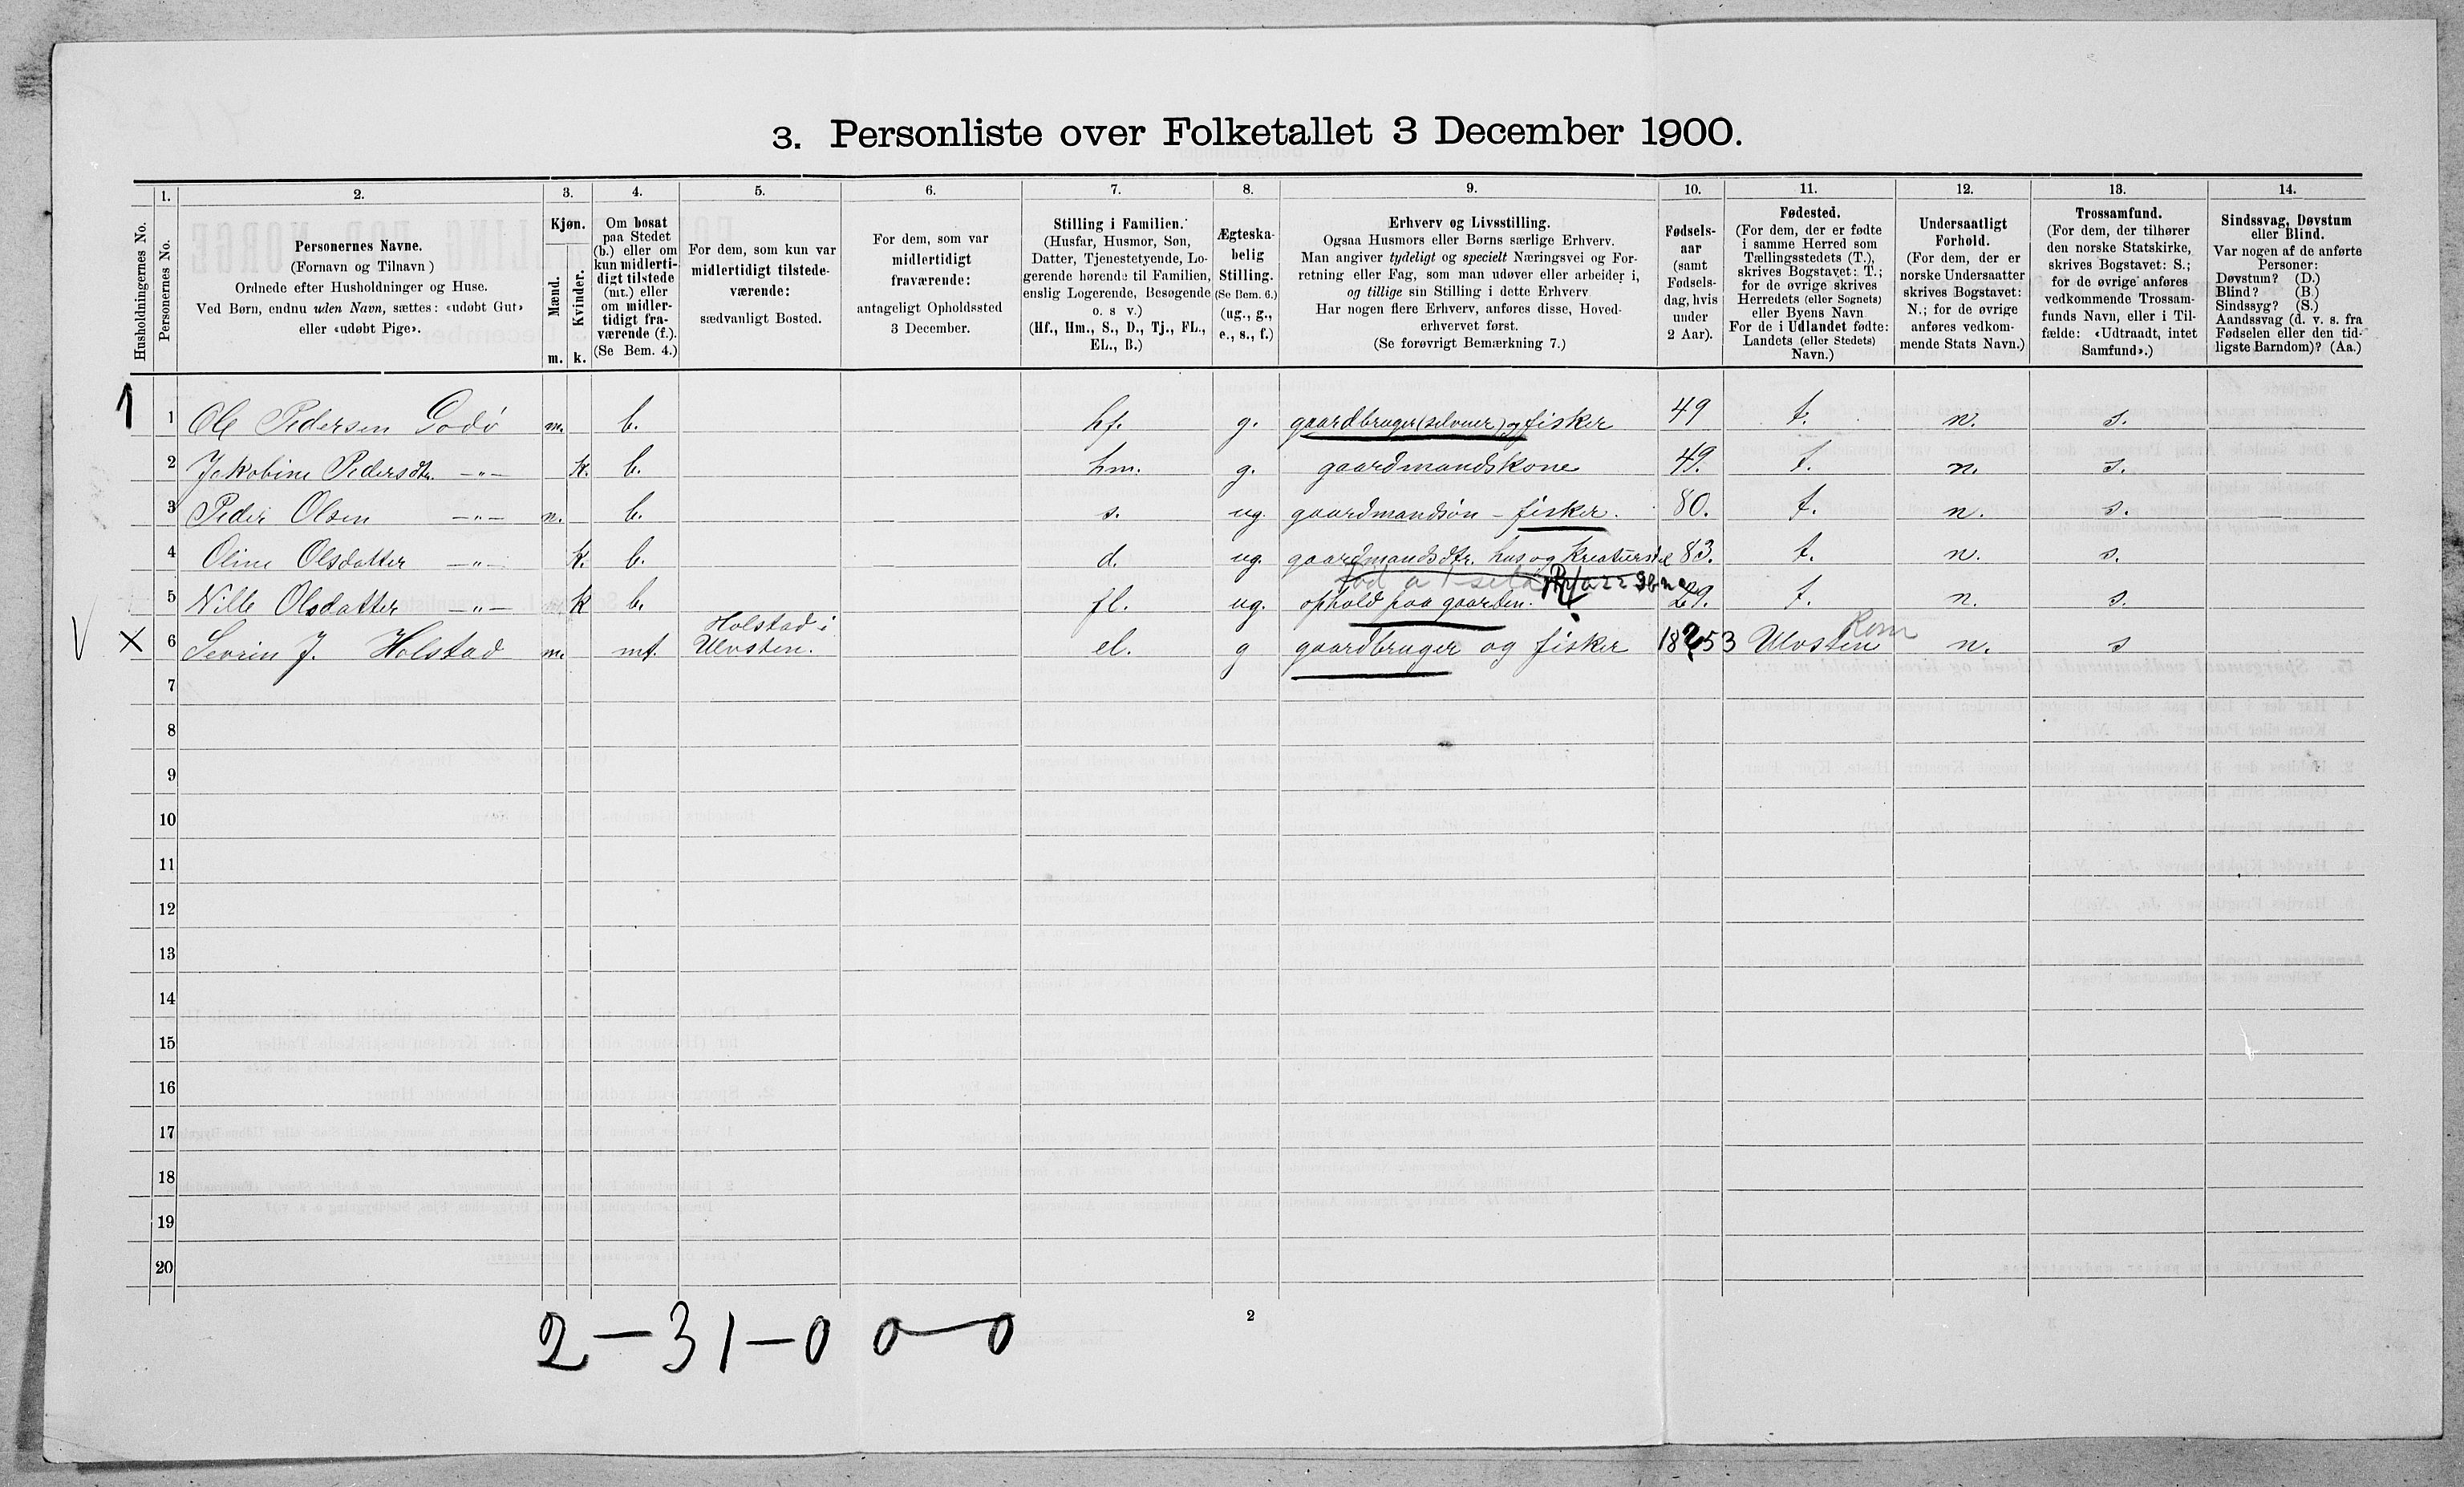 3. Personliste over Folketallet 3 December 1900.
Husholdningernes No.
1.
Personernes No.
2.
Personernes Navne.
(Fornavn og Tilnavn)
Ordnede efter Husholdninger og Huse.
Ved Børn, endnu uden Navn, sættes: «udøbt Gut»
eller «udøbt Pige».
3.
Kjøn.
Mænd.
Kvinder.
m. k.
4.
Om bosat
paa Stedet
(b.) eller om
kun midlerti-
digt tilstede
(mt.) eller
om midler-
tidigt fra-
værende (f.).
(Se Bem. 4.)
5.
For dem, som kun var
midlertidigt tilstede-
værende:
sædvanligt Bosted.
6.
For dem, som var
midlertidigt
fraværende:
antageligt Opholdssted
3 December.
7.
Stilling i Familien.
(Husfar, Husmor, Søn,
Datter, Tjenestetyende, Lo-
gerende hørende til Familien,
enslig Logerende, Besøgende
o. s v.)
(Hf., Hm., S., D., Tj., FL.,
EL., B.)
8.
Ægteska-
belig
Stilling.
(Se Bem. 6.)
(ug., g.,
e., s., f.)
9.
Erhverv og Livsstilling.
Ogsaa Husmors eller Børns særlige Erhverv.
Man angiver tydeligt og specielt Næringsvei og For-
retning eller Fag, som man udøver eller arbeider i,
og tillige sin Stilling i dette Erhverv
Har nogen flere Erhverv, anføres disse, Hoved-
erhvervet først.
(Se forøvrigt Bemærkning 7.)
10.
Fødsels-
aar
(samt
Fødsels-
dag, hvis
under
2 Aar).
11.
Fødested.
(For dem, der er fødte
i samme Herred som
Tællingsstedets (T.),
skrives Bogstavet: T.;
for de øvrige skrives
Herredets (eller Sognets)
eller Byens Navn
For de i Udlandet fødte:
Landets (eller Stedets)
Navn.)
12.
Undersaatligt
Forhold.
(For dem, der er
norske Undersaatter
skrives Bogstavet:
N.; for de øvrige
anføres vedkom-
mende Stats Navn.)
13.
Trossamfund.
(For dem, der tilhører
den norske Statskirke,
skrives Bogstavet: S.;
for de øvrige anføres
vedkommende Trossam-
funds Navn, eller i Til-
fælde: «Udtraadt, intet
Samfund».)
14.
Sindssvag, Døvstum
eller Blind.
Var nogen af de anførte
Personer:
Døvstum? (D.)
Blind? (B.)
Sindssyg? (S.)
Aandssvag (d. v. s. fra
Fødselen eller den tid-
ligste Barndom)? (Aa.)
1 1 Ole Pedersen Godø m. b. hf. g. gaardbruger (selveier) og fisker 49 t. n. s.
2 Jakobine Pedersdtr. —"— k. b. hm. g. gaardmandskone 49. t. n. s.
3 Peder Olsen —"— m. b. s. ug. gaardmandsøn - fisker. 80. t. n. s.
4 Oline Olsdatter —"— k. b. d. ug. gaardmandsdtr. hus og kreaturstel 83. t. n. s.
5 Nille Olsdatter —"— k b. fl. ug. ophold paa gaarden. 29. t. n. s.
Holstad i
X 6 Sevrin J. Holstad m. mt. Ulvsten. el. g gaardbruger og fisker 1853 Ulvsten Rom n. s
7
8
9
10
11
12
13
14
15
16
17
18
19
20
2
2 — 3 1 — 0 0 — 0